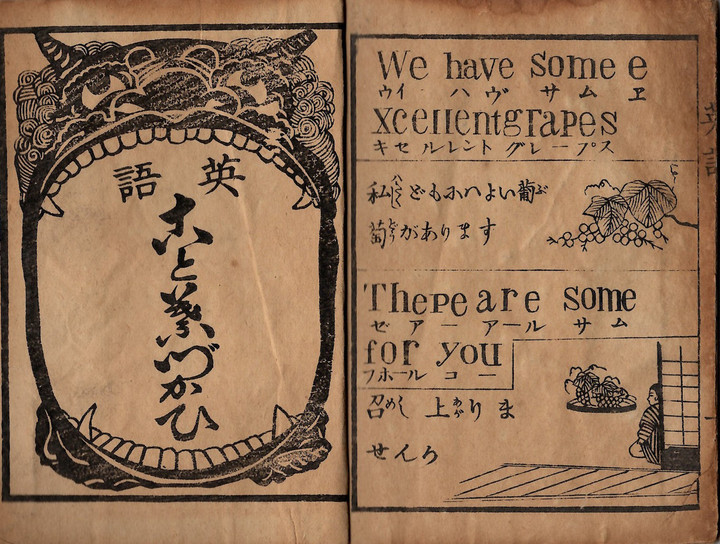 英語
こと葉づかひ
We have some e
ウイ ハヴ サム ヱ
xcellentgrapes
キセルレント グレープス
私どもにハよい葡
萄があります
Thepe are some
ゼアー アール サム
for you
フホール コー
召し上りま
せんか